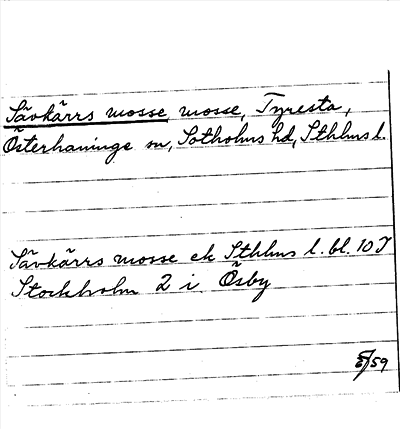 Sävkärrs mosse, mosse, Tyresta,
Österhaninge sn, Sotholms hd, Sthlms l.
Sävkärrs mosse ek Sthlms l. bl. 10 J
Stockholm 2 i Ösby
/59